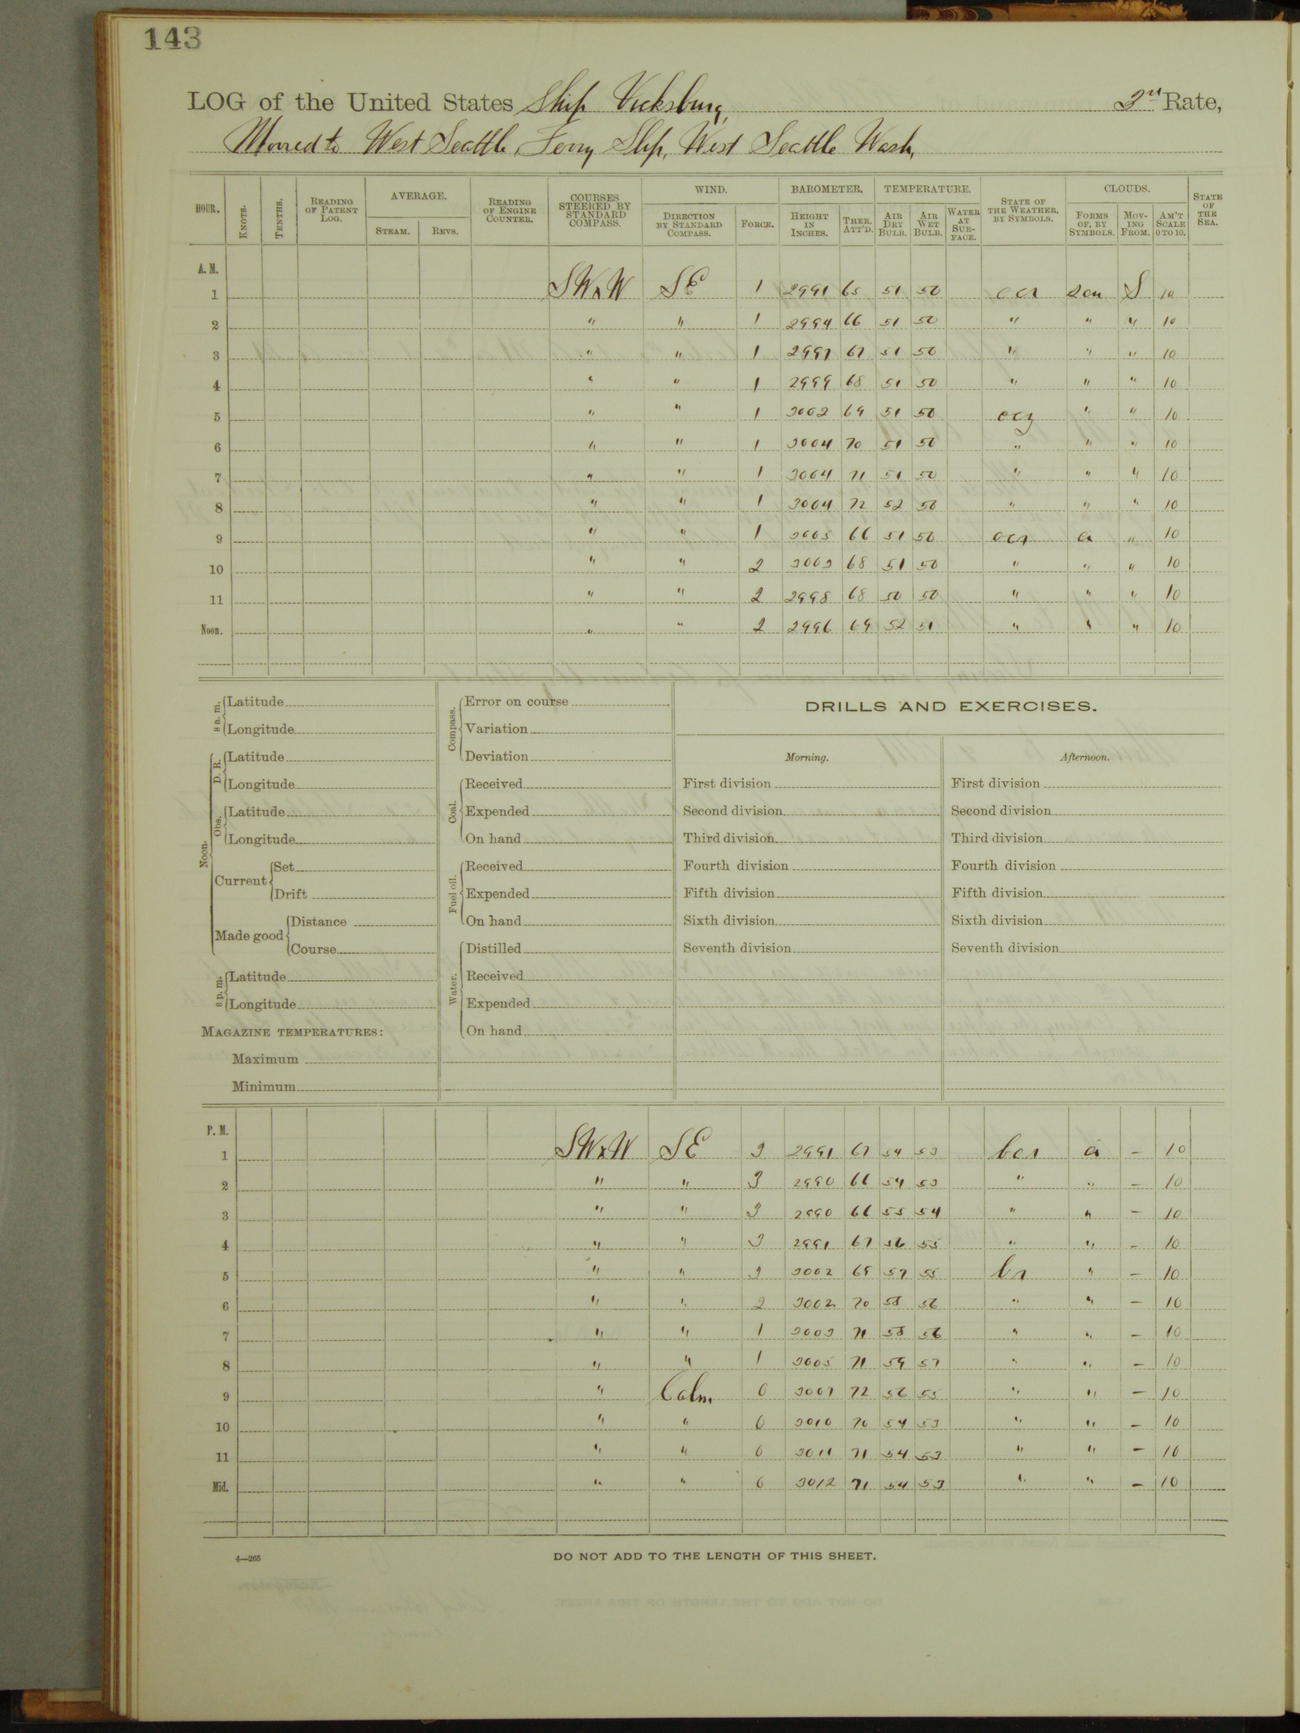 143
LOG of the United States Ship Vicksburg, 2nd Rate,
Moored to West Seattle Ferry Slip, West Seattle Wash,
HOUR. KNOTS. TENTHS. READING OF PATENT LOG. AVERAGE. STEAM. REVS. READING OF ENGINE COUNTER. COURSES STEERED BY STANDARD COMPASS. WIND. DIRECTION BY STANDARD COMPASS. FORCE. BAROMETER. HEIGHT IN INCHES. THER. ATT'D. TEMPERATURE. AIR DRY BULB. AIR WET BULB. WATER AT SURFACE. STATE OF THE WEATHER, BY SYMBOLS. CLOUDS. FORMS OF, BY SYMBOLS. MOVING FROM. AM'T SCALE 0 TO 10. STATE OF THE SEA.
A. M.
1 SWxW SE 1 2991 65 51 50 ocr S 10
2 " " 1 2994 66 51 50 " " " 10
3 " " 1 2997 67 51 50 " " " 10
4 " " 1 2999 68 51 50 " " " 10
5 " " 1 3002 69 51 50 ocz " " 10
6 " " 1 3004 70 51 50 " " " 10
7 " " 1 3004 71 51 50 " " " 10
8 " " 1 3004 72 52 50 " " " 10
9 " " 1 3005 66 51 50 ocr a " 10
10 " " 2 3003 68 51 50 " " " 10
11 " " 2 2998 68 50 50 " " " 10
Noon. " " 2 2996 69 52 51 " " " 10
8 a. m. Latitude
Longitude
Noon. D. R. Latitude
Longitude
Obs. Latitude
Longitude
Current Set
Drift
Made good Distance
Course
8 p. m. Latitude
Longitude
MAGAZINE TEMPERATURES:
Maximum
Minimum
Compass. Error on course
Variation
Deviation
Coal. Received
Expended
On hand
Fuel oil. Received
Expended
On hand
Water. Distilled
Received
Expended
On hand
DRILLS AND EXERCISES.
Morning. Afternoon.
First division First division
Second division Second division
Third division Third division
Fourth division Fourth division
Fifth division Fifth division
Sixth division Sixth division
Seventh division Seventh division
P. M.
1 SWxW SE 3 2991 67 54 53 bcr a – 10
2 " " 3 2990 66 54 53 " " – 10
3 " " 3 2990 66 55 54 " " – 10
4 " " 3 2991 67 56 55 " " – 10
5 " " 3 3002 69 57 55 br " – 10
6 " " 2 3002 70 58 56 " " – 10
7 " " 1 3003 71 58 56 " " – 10
8 " " 1 3005 71 59 57 " " – 10
9 " Calm 0 3007 72 56 55 " " – 10
10 " " 0 3010 70 54 53 " " – 10
11 " " 0 3011 71 54 53 " " – 10
Mid. " " 0 3012 71 54 53 " " – 10
4—265
DO NOT ADD TO THE LENGTH OF THIS SHEET.